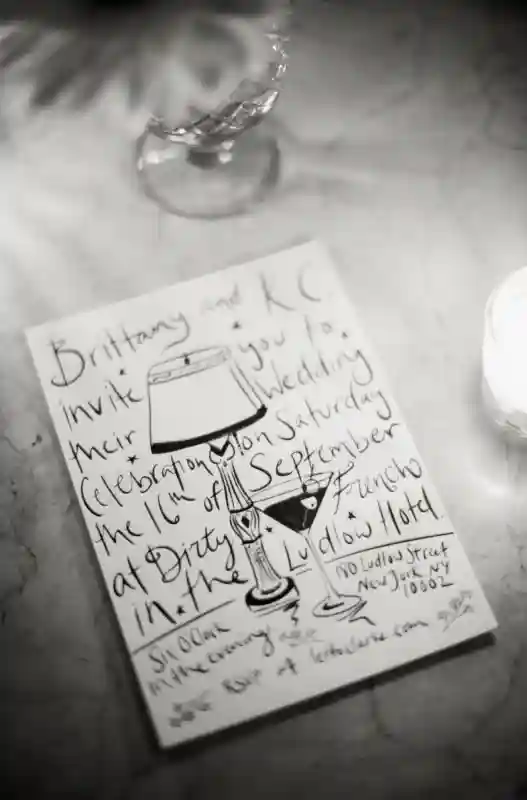 Brittany and K C
invite you to
their Wedding
Celebration on Saturday
the 16th of September
at Dirty French
in the Ludlow Hotel
180 Ludlow Street
New York NY
10002
Six O'Clock
in the evening
RSVP at